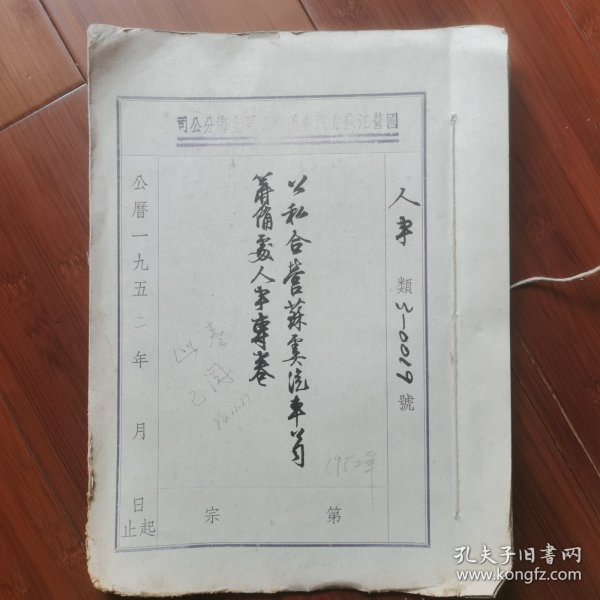 國營江蘇省汽車運輸公司上海分公司
人事 類 號
公私合營蘇嘉汽車公司
籌備處人事專卷
已閱
1952年
公曆一九五二年 月 日起止
第 宗
孔夫子旧书网
www.kongfz.com